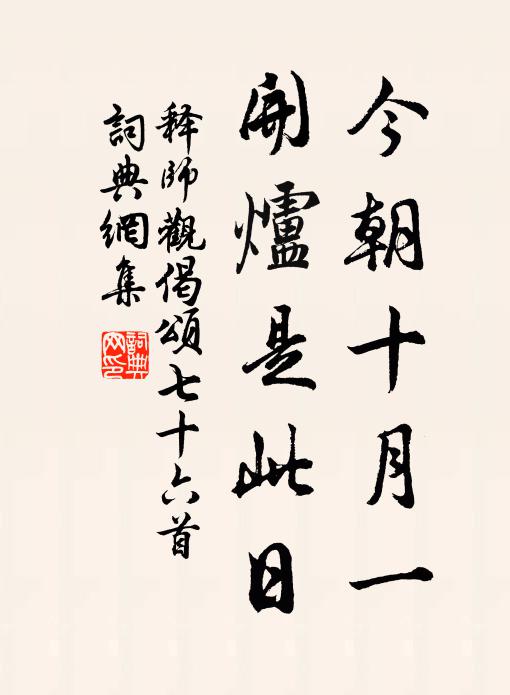 今朝十月一
開爐是此日
释師觀偈頌七十六首
詞典網集
詞典網印